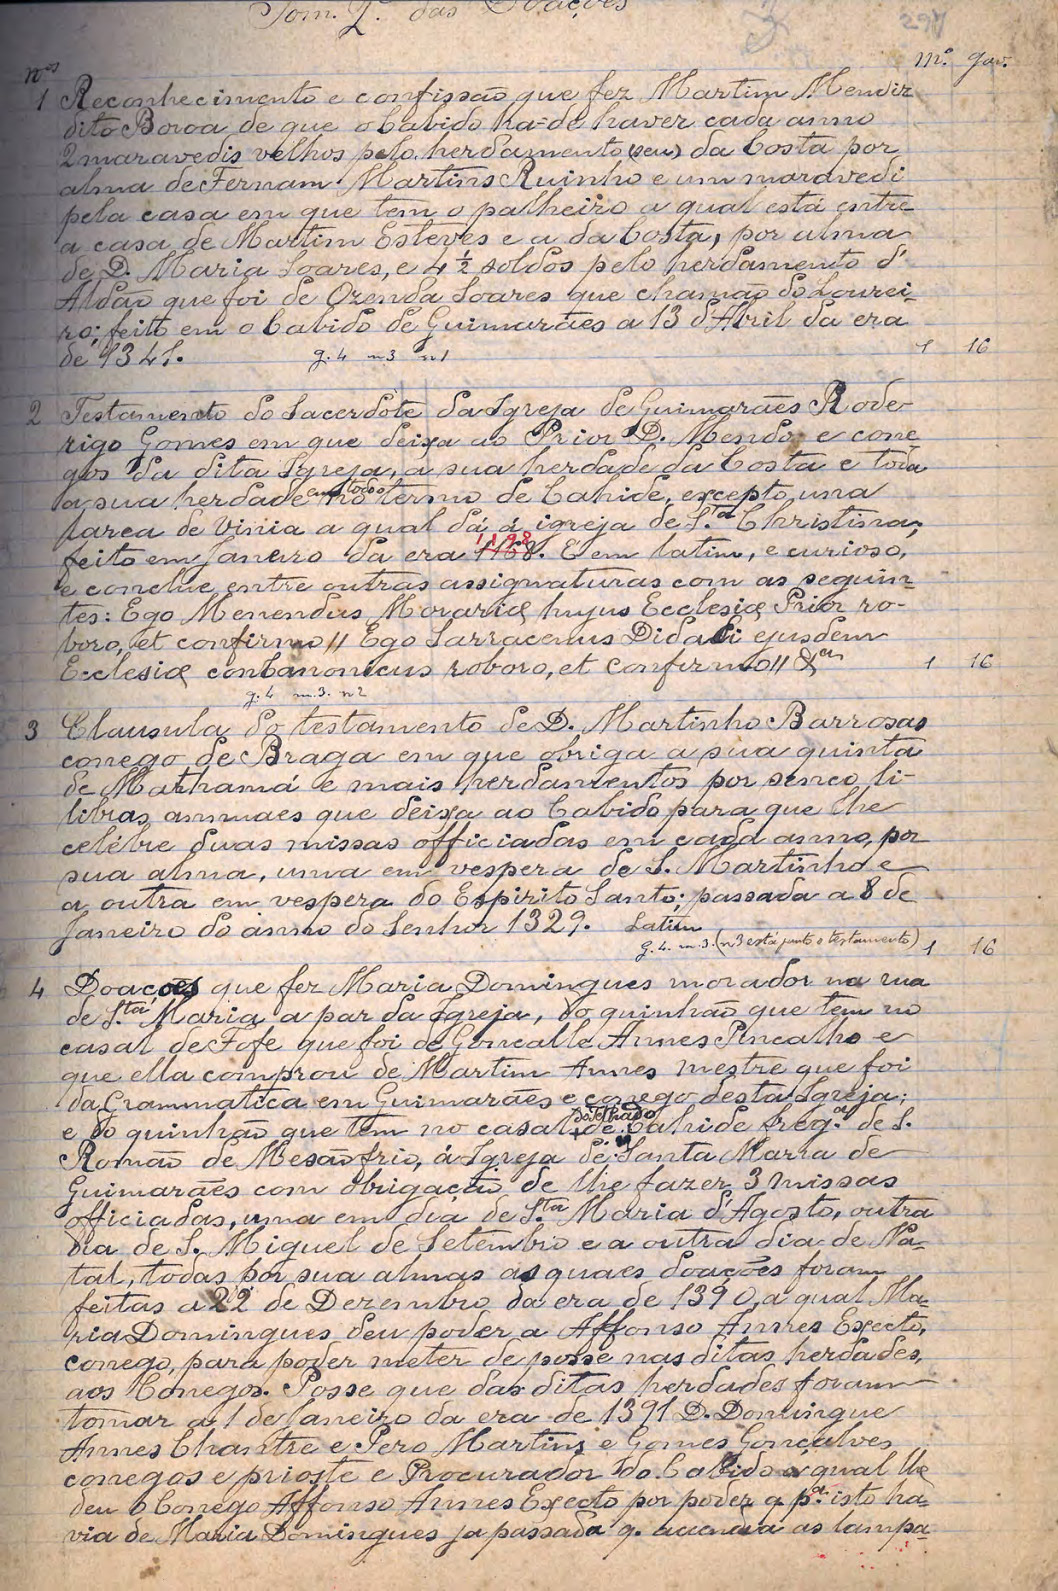 Tom. 2.º das Doações
297
n.os m.º gav.
1 Reconhecimento e confissão que fez Martim Mendiz
dito Boroa de que o Cabido ha-de haver cada anno
2 maravedis velhos pelo herdamento (seu) da Costa por
alma de Fernam Martins Ruinho e um maravedi
pela casa em que tem o palheiro a qual está entre
a casa de Martim Esteves e a da Costa, por alma
de D. Maria Soares, e 4 ½ soldos pelo herdamento d'
Aldão que foi de Ozenda Soares que chamão do Lourei-
ro; feito em o Cabido de Guimarães a 13 d'Abril da era
de 1341. 1 16
g. 4 m 3 n 1
2 Testamento do Sacerdote da Igreja de Guimarães Rode-
rigo Gomes em que deixa ao Prior D. Mendo e cone-
gos da dita Igreja, a sua herdade da Costa e toda
a sua herdade em todo no termo de Cahide, excepto uma
larea de vinia a qual dá á igreja de S.ta Christina;
feito em Janeiro da era 1168. 1198 É em latim, e curioso,
e conclue entre outras assignaturas com as seguin-
tes: Ego Menendus Moraria hujus Ecclesiæ Prior ro-
boro, et confirmo // Ego Sarracenus Didaci ejusdem
Ecclesiæ conCanonicus roboro, et confirmo // &.a 1 16
g. 4 m. 3. n 2
3 Clausula do testamento de D. Martinho Barrosas
conego de Braga em que obriga a sua quinta
de Mathamá e mais herdamentos por sinco li-
libras annuaes que deixa ao Cabido para que lhe
celebre duas missas officiadas em cada anno, por
sua alma, uma em vespera de S. Martinho e
a outra em vespera do Espirito Santo; passada a 8 de
Janeiro do anno do Senhor 1329. Latim
g. 4. m. 3. (n 3 está junto o testamento) 1 16
4 Doações que fez Maria Domingues morador na rua
de S.ta Maria a par da Igreja, do quinhão que tem no
casal de Fofe que foi de Goncallo Annes Pincalho e
que ella comprou de Martim Annes mestre que foi
da Grammatica em Guimarães e conego desta Igreja;
e do quinhão que tem no casal do Telhado de Cahide freg.a de S.
Romão de Mesãofrio, á Igreja de Santa Maria de
Guimarães com obrigação de lhe fazer 3 missas
officiadas, uma em dia de S.ta Maria d'Agosto, outra
dia de S. Miguel de Setembro e a outra dia de Na-
tal, todas por sua almas as quaes doações foram
feitas a 22 de Dezembro da era de 1390, a qual Ma-
ria Domingues deu poder a Affonso Annes Execto,
conego, para poder meter de posse nas ditas herdades,
aos Conegos. Posse que das ditas herdades foram
tomar a 1 de Janeiro da era de 1391 D. Domingue
Annes Chantre e Pero Martins e Gomes Gonçalves
conegos e prioste e Procurador do Cabido a qual lhe
deu o Conego Affonso Annes Execto por poder q. p.a isto ha-
via de Maria Domingues ja passada q. acendia as lampa-